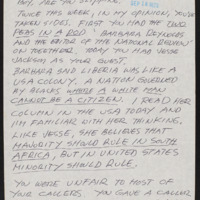 HEY, ARE YOU
TWICE THIS WEEK, IN MY OPINION, YOU'VE
TAKEN SIDES. FIRST YOU HAD THE TWO
PEAS IN A POD, BARBARA REYNOLDS
AND THE EDITOR OF THE NATIONAL REVIEW
ON TOGETHER. TODAY YOU HAD JESSE
JACKSON AS YOUR GUEST.
BARBARA SAID LIBERIA WAS LIKE A
USA COLONY. A NATION FOUNDED
BY BLACKS WHERE A WHITE MAN
CANNOT BE A CITIZEN. I READ HER
COLUMN IN THE USA TODAY AND
I'M FAMILIAR WITH HER THINKING.
LIKE JESSE, SHE BELIEVES THAT
MAJORITY SHOULD RULE IN SOUTH
AFRICA, BUT IN UNITED STATES
MINORITY SHOULD RULE.
YOU WERE UNFAIR TO MOST OF
YOUR CALLERS. YOU GAVE A CALLER